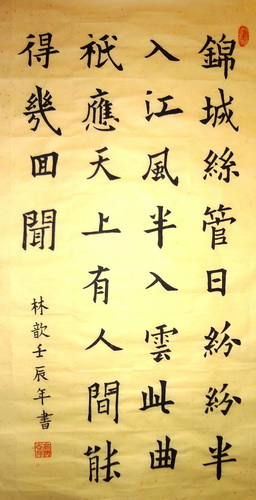 錦城絲管日紛紛半
入江風半入雲此曲
祇應天上有人間能
得幾回聞
林歆壬辰年書